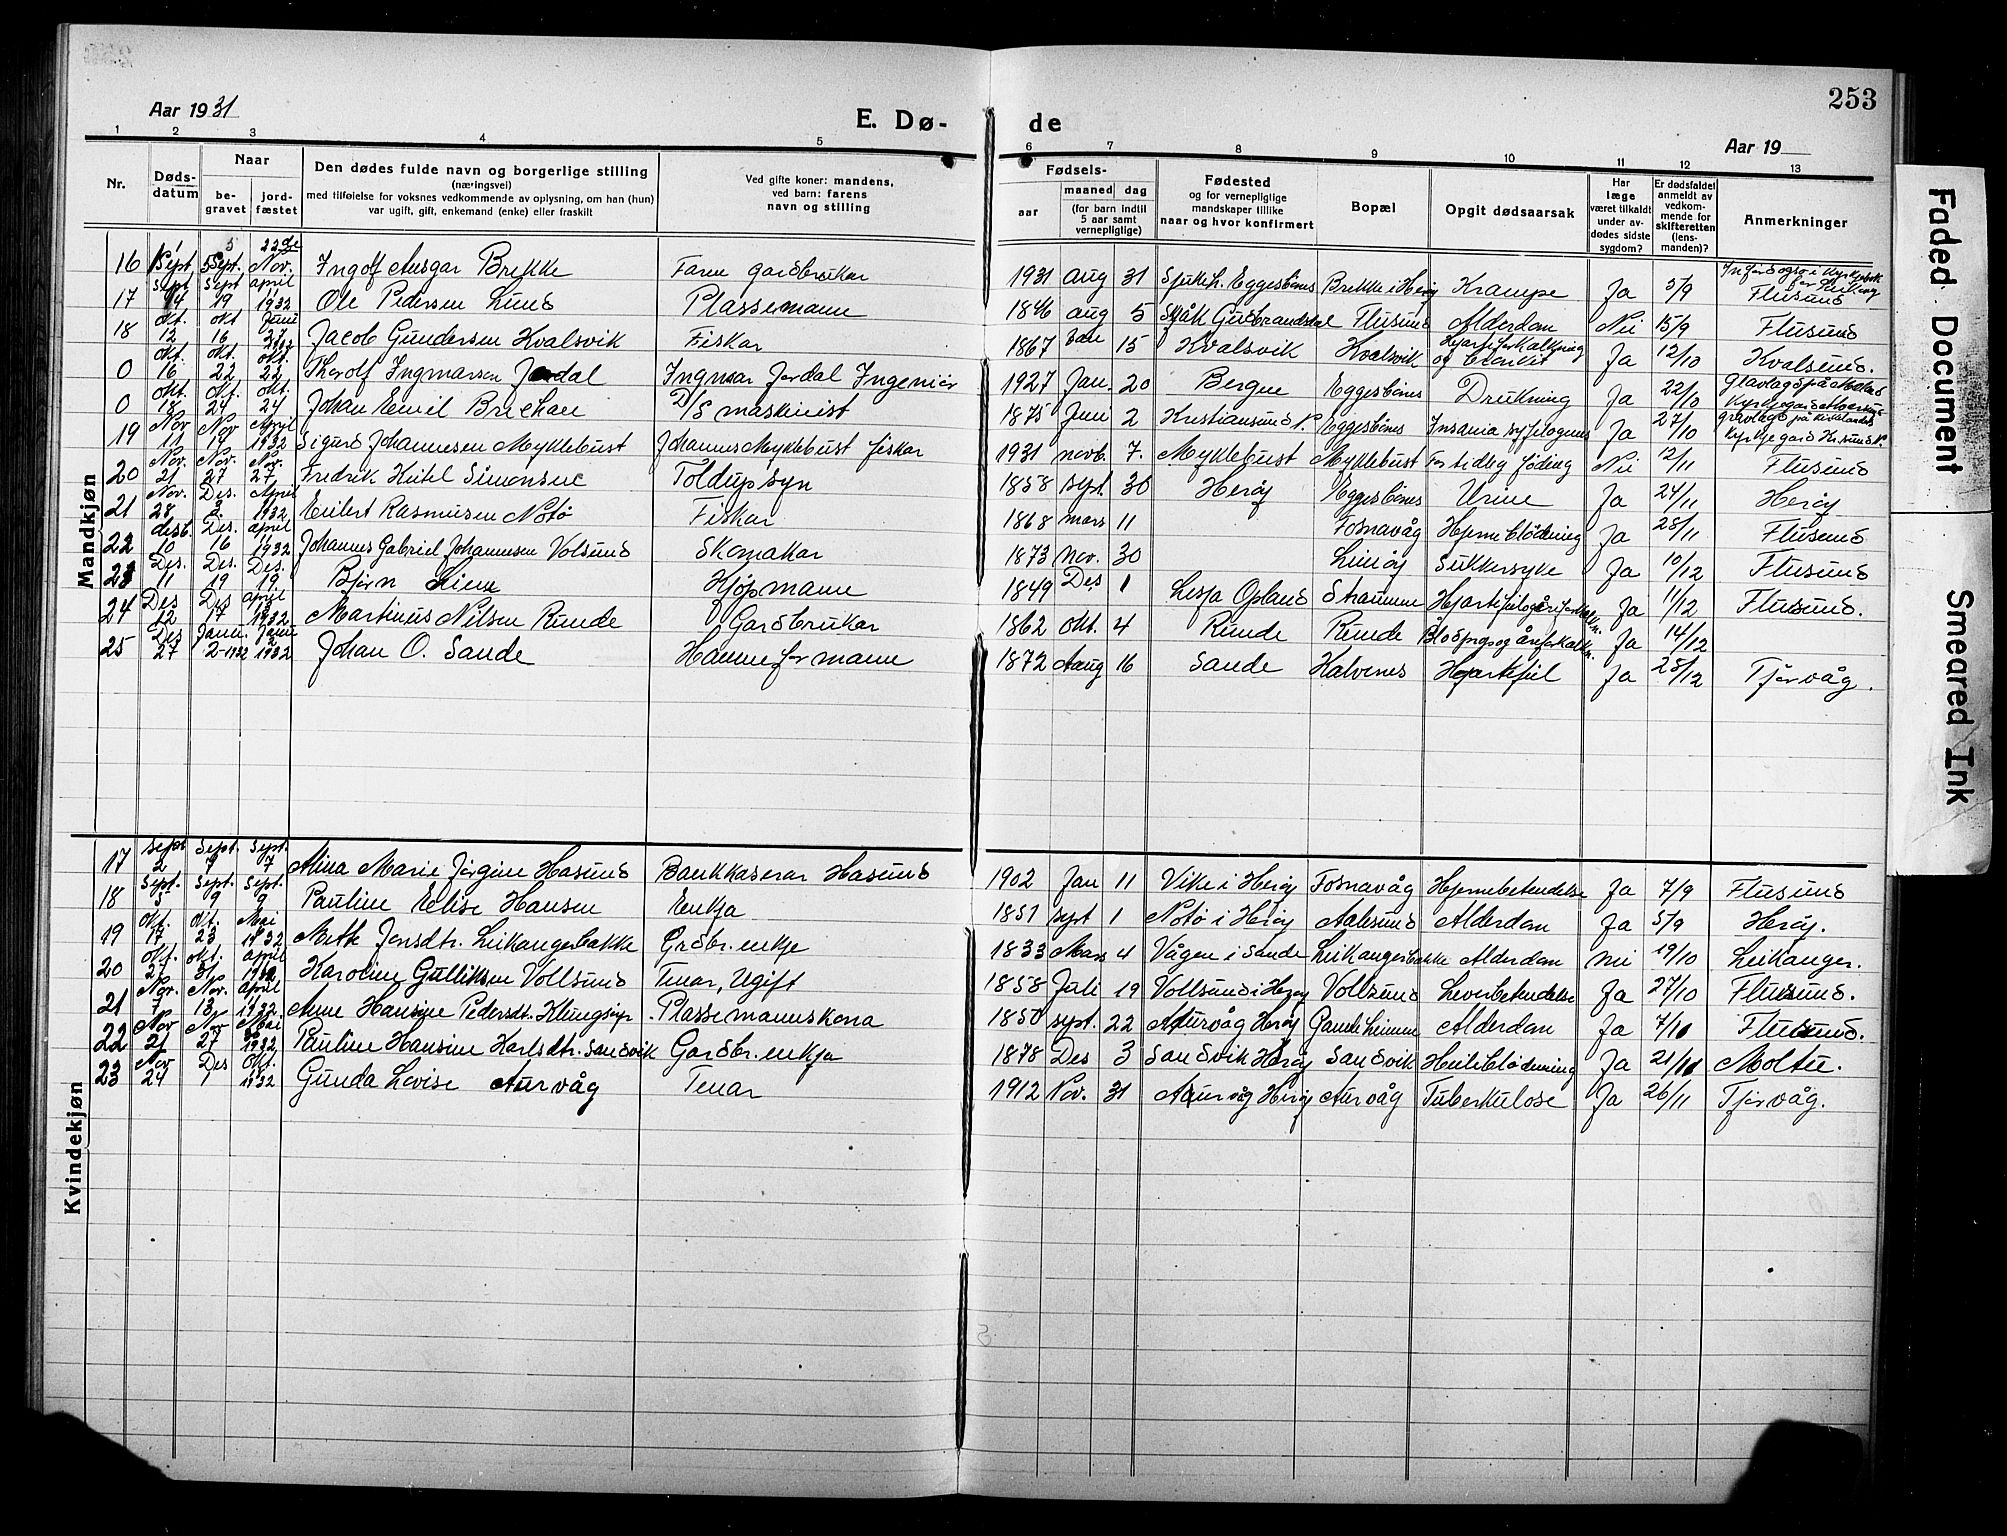 253
Aar 1931
E. Dø-
de
Aar 19
1 2 3 4 5 6 7 8 9 10 11 12 13
Nr.
Døds-
datum
Naar
be-
gravet
jord-
fæstet
Den dødes fulde navn og borgerlige stilling
(næringsvei)
med tilføielse for voksnes vedkommende av oplysning, om han (hun)
var ugift, gift, enkemand (enke) eller fraskilt
Ved gifte koner: mandens,
ved barn: farens
navn og stilling
Fødsels-
aar
maaned dag
(for barn indtil
5 aar samt
vernepligtige)
Fødested
og for vernepligtige
mandskaper tillike
naar og hvor konfirmert
Bopæl
Opgit dødsaarsak
Har
læge
været tilkaldt
under av-
dødes sidste
sygdom?
Er dødsfaldet
anmeldt av
vedkom-
mende for
skifteretten
(lens-
manden)?
Anmerkninger
Mandkjøn
16 Sept. 5 Sept. 22de Nov. Ingolf Ansgar Brekke Faren gardbrukar 1931 aug 31 Sjukeh. Eggesbönes Brekke i Heröy Krampe Ja 5/9
17 Sept 14 Sept 19 april 1932 Ole Pedersen Lund Plassemann 1846 aug 5 Skjåk Gudbrandsdal Flusund Alderdom Nei 15/9 Flusund
18 okt. 12 okt 16 Juni 1932 Jacob Gundersen Kvalsvik Fiskar 1867 Jan 15 Kvalsvik Kvalsvik Hjarteforkalkning og Ja 12/10 Kvalsund.
0 okt. 16 okt. 22 okt. 22 Thorolf Ingmarsen Jordal Ingmar Jordal Ingeniör 1927 Jan. 20 Bergen Eggesbönes Drukning Ja 22/10
0 okt. Okt. 24 okt. 24 Johan Emil Brechan D/S maskinist 1875 Juni 2 Kristiansund N. Eggesbönes Insania Ja 27/10 gravlagd på Kirkelandet Kyrkjegard Kr.sund N.
19 Nov 11 Nov 19 April 1932 Sigurd Johannesen Myklebust Johannes Myklebust fiskar 1931 novb. 7. Myklebust Myklebust For tidleg föding Nei 12/11 Flusund
20 Nov. 21 Nov. 27 Nov. 27 Fredrik Ketil Simonsen Toldupsyn 1858 sept. 30 Heröy Eggesbönes Urine Ja 24/11 Heröy
21 Nov. 28 Des. 3. April 1932 Eilert Rasmusen Notö Fiskar 1868 mars 11 Fosnavåg Hjerneblödning Ja 28/11 Flusund
22 desb. 10 Des. 16 april 1932 Johannes Gabriel Johannesen Volsund Skomakar 1873 nov. 30 Leinöy Sukkersyke Ja 10/12 Flusund
23 Des. 11 Des. 19 Des. 19 Björn Lien Kjöpmann 1849 Des 1 Lesja Opland Straumen Ja 11/12 Flusund.
24 Des 12 Des 17 april 1932 Martinus Nilsen Runde Gardbrukar 1862 okt. 4 Runde Runde Ja 14/12
25 Des 27 Janu. 2-1932 1932 Johan O. Sande Handformann 1872 Aug 16 Sande Kalvenes Hjartefeil Ja 28/12 Tjörvåg.
Kvindekjøn
17 Sept 2 Sept. 7 Sept. 7 Alina Marie Jörgine Hasund Bankkaserar Hasund 1902 Jan 11 Vike i Heröy Fosnavåg Hjernebetendelse Ja 7/9 Flusund
18 Sept. 5 Sept. 9 Sept. 9 Pauline Elise Hansen Enkja 1851 sept 1 Notö i Heröy Aalesund Alderdom Ja 5/9 Heröy.
19 Okt. 17 Okt. 23 Mai 1932 Mette Jensdtr. Leikangerbakke Grdbr. enkje 1833 Mars 4 Vågen i Sande Leikangerbakke Alderdom nei 19/10 Leikanger.
20 Okt. 27 okt. 31 April 1932 Karoline Gulliksen Vollsund Tenar, Ugift 1858 Juli 19 Vollsund i Heröy Vollsund Leverbetendelse Ja 27/10 Flusund.
21 Nov. 7 Nov. 13 April 1932. Anne Hansine Pedersdt. Klungsöyr Plassemannskona 1850 sept. 22 Aurvåg Heröy Alderdom Ja 7/11 Flusund.
22 Nov 21 Nov 27 Mai 1932 Pauline Hansine Karlsdtr. Sandvik Gardbr. enkja 1878 Des 3 Sandvik Heröy Sandvik Heileblödning Ja 21/11 Moltu.
23 Nov 24 Des 1 Okt. 1932 Gunda Lovise Aurvåg Tenar 1912 Nov. 31 Aurvåg Heröy Aurvåg Tuberkulose Ja 26/11 Tjörvåg.
Faded Document
Smeared Ink